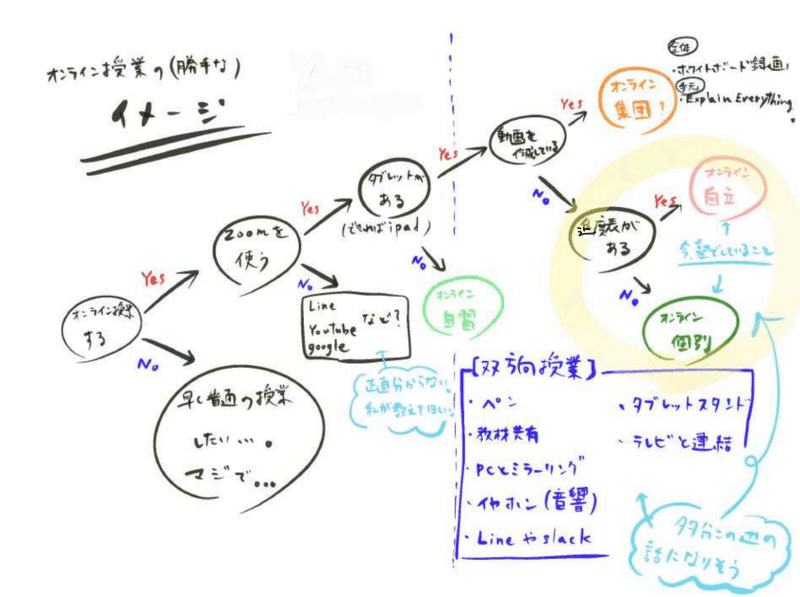 オンライン授業の(勝手な)
イメージ
オンライン授業
する
Yes
No
早く普通の授業
したい….
マジで…
Zoomを
使う
Yes
No
Line
Youtube
google
など?
正直分からない。
私が教えてほしい。
タブレットが
ある
(できればipad)
Yes
No
オンライン
自習
動画を
作成している
Yes
No
オンライン
集団?
全体
・ホワイトボード録画
手元
・Explain Everything
進度表が
ある
Yes
No
オンライン
自立
今、塾でしていること
オンライン
個別
[双方向授業]
・ペン
・教材共有
・PCとミラーリング
・イヤホン(音響)
・Lineやslack
・タブレットスタンド
・テレビと連結
多分この辺の
話になりそう